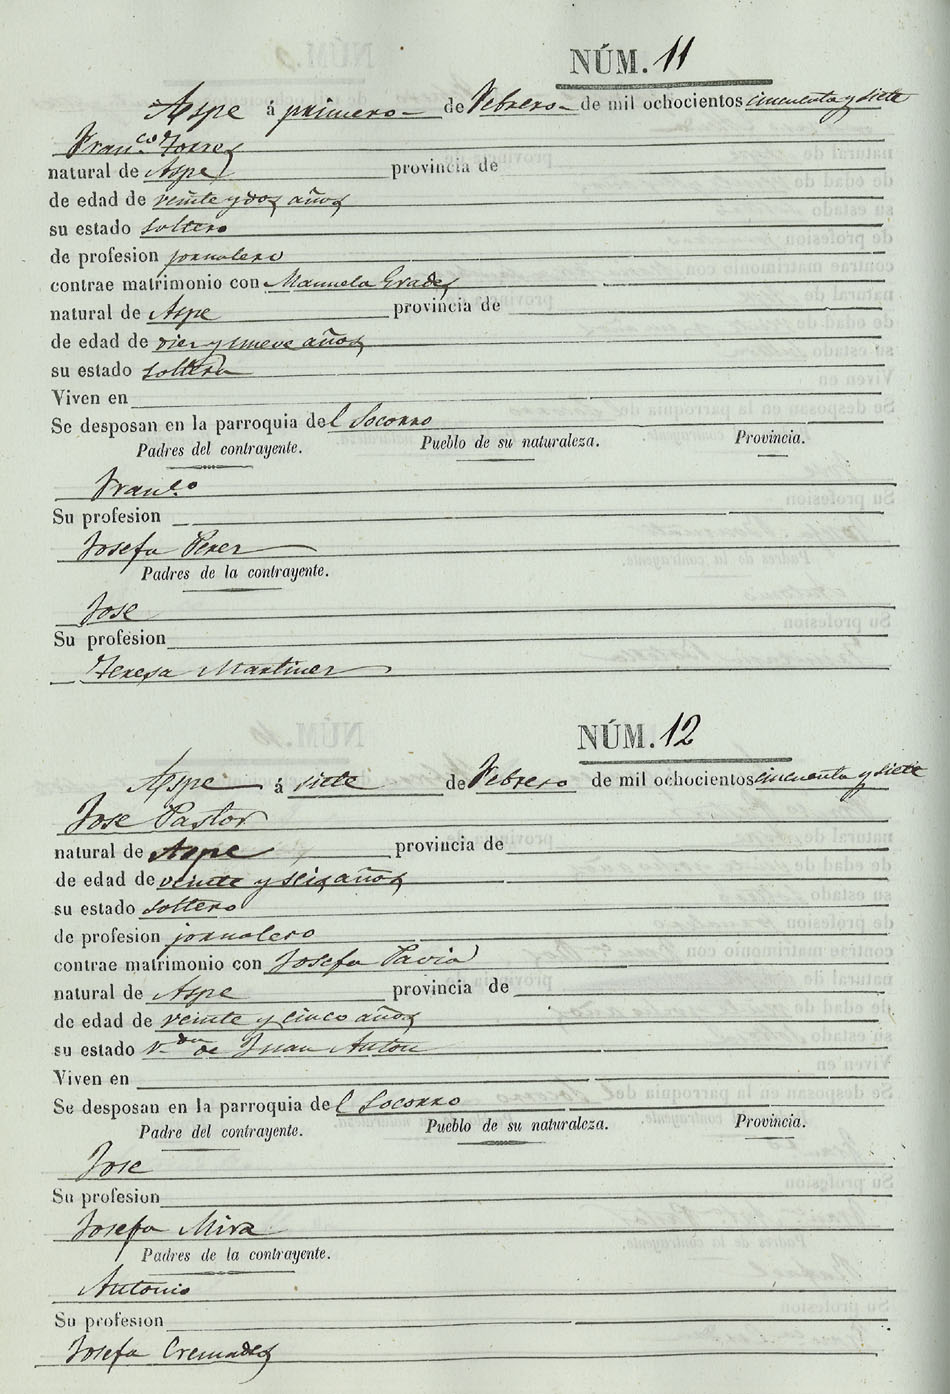 NÚM. 11
Aspe á primero de Febrero de mil ochocientos cincuenta y siete
Fran.co Torres
natural de Aspe provincia de
de edad de veinte y dos años
su estado soltero
de profesion jornalero
contrae matrimonio con Manuela Grades
natural de Aspe provincia de
de edad de diez y nueve años
su estado soltera
Viven en
Se desposan en la parroquia del Socorro
Padres del contrayente. Pueblo de su naturaleza. Provincia.
Fran.co
Su profesion
Josefa Perez
Padres de la contrayente.
Jose
Su profesion
Teresa Martinez
NÚM. 12
Aspe á siete de Febrero de mil ochocientos cincuenta y siete
Jose Pastor
natural de Aspe provincia de
de edad de veinte y seis años
su estado soltero
de profesion jornalero
contrae matrimonio con Josefa Pavia
natural de Aspe provincia de
de edad de veinte y cinco años
su estado v.da de Juan Anton
Viven en
Se desposan en la parroquia del Socorro
Padre del contrayente. Pueblo de su naturaleza. Provincia.
Jose
Su profesion
Josefa Mira
Padres de la contrayente.
Antonio
Su profesion
Josefa Cremades